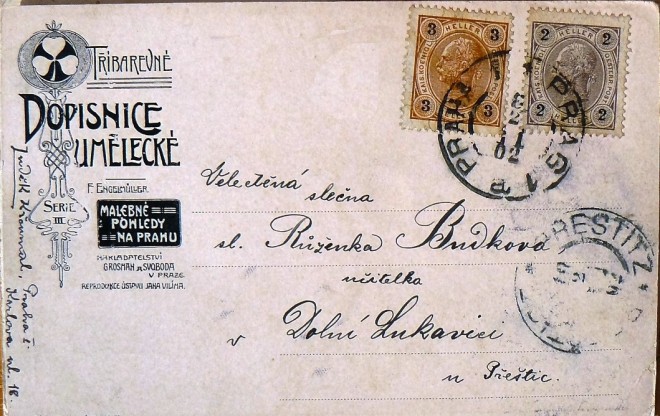 TŘÍBAREVNÉ
DOPISNICE
UMĚLECKÉ
F. ENGELMÜLLER.
SERIE
III.
MALEBNÉ
POHLEDY
NA PRAHU
NAKLADATELSTVÍ
GROSMAN A SVOBODA
V PRAZE.
REPRODUKCE ÚSTAVU JANA VILÍMA.
3 HELLER 3
3 3
2 HELLER 2
2 2
PRAHA 1 PRAG 1
02
Velectěná slečna
sl. Růženka Budkova
učitelka
v Dolní Lukavici
u Přeštic.
PRESTITZ
Praha I.
Karlova ul. 18.